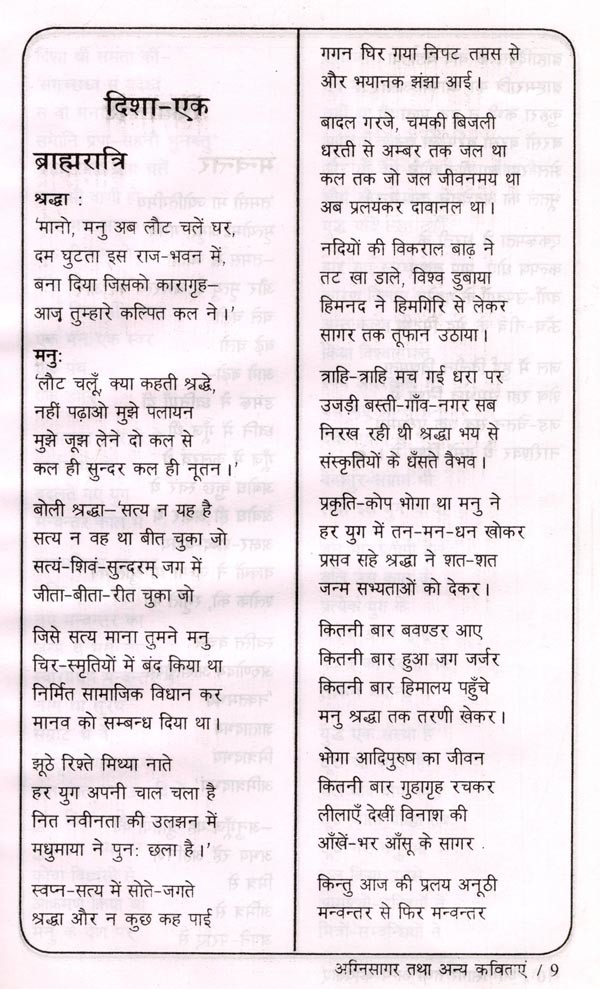 दिशा-एक
ब्राह्मरात्रि
श्रद्धा :
‘मानो, मनु अब लौट चलें घर,
दम घुटता इस राज-भवन में,
बना दिया जिसको कारागृह–
आज तुम्हारे कल्पित कल ने।’
मनुः
‘लौट चलूँ, क्या कहती श्रद्धे,
नहीं पढ़ाओ मुझे पलायन
मुझे जूझ लेने दो कल से
कल ही सुन्दर कल ही नूतन।’
बोली श्रद्धा–‘सत्य न यह है
सत्य न वह था बीत चुका जो
सत्यं-शिवं-सुन्दरम् जग में
जीता-बीता-रीत चुका जो
जिसे सत्य माना तुमने मनु
चिर-स्मृतियों में बंद किया था
निर्मित सामाजिक विधान कर
मानव को सम्बन्ध दिया था।
झूठे रिश्ते मिथ्या नाते
हर युग अपनी चाल चला है
नित नवीनता की उलझन में
मधुमाया ने पुनः छला है।’
स्वप्न-सत्य में सोते-जगते
श्रद्धा और न कुछ कह पाई
गगन घिर गया निपट तमस से
और भयानक झंझा आई।
बादल गरजे, चमकी बिजली
धरती से अम्बर तक जल था
कल तक जो जल जीवनमय था
अब प्रलयंकर दावानल था।
नदियों की विकराल बाढ़ ने
तट खा डाले, विश्व डुबाया
हिमनद ने हिमगिरि से लेकर
सागर तक तूफान उठाया।
त्राहि-त्राहि मच गाई धरा पर
उजड़ी बस्ती-गाँव-नगर सब
निरख रही थी श्रद्धा भय से
संस्कृतियों के धँसते वैभव।
प्रकृति-कोप भोगा था मनु ने
हर युग में तन-मन-धन खोकर
प्रसव सहे श्रद्धा ने शत-शत
जन्म सभ्यताओं को देकर।
कितनी बार बवण्डर आए
कितनी बार हुआ जग जर्जर
कितनी बार हिमालय पहुँचे
मनु श्रद्धा तक तरणी खेकर।
भोगा आदिपुरुष का जीवन
कितनी बार गुहागृह रचकर
लीलाएँ देखीं विनाश की
आँखें-भर आँसू के सागर
किन्तु आज की प्रलय अनूठी
मन्वन्तर से फिर मन्वन्तर
अग्निसागर तथा अन्य कविताएं / 9